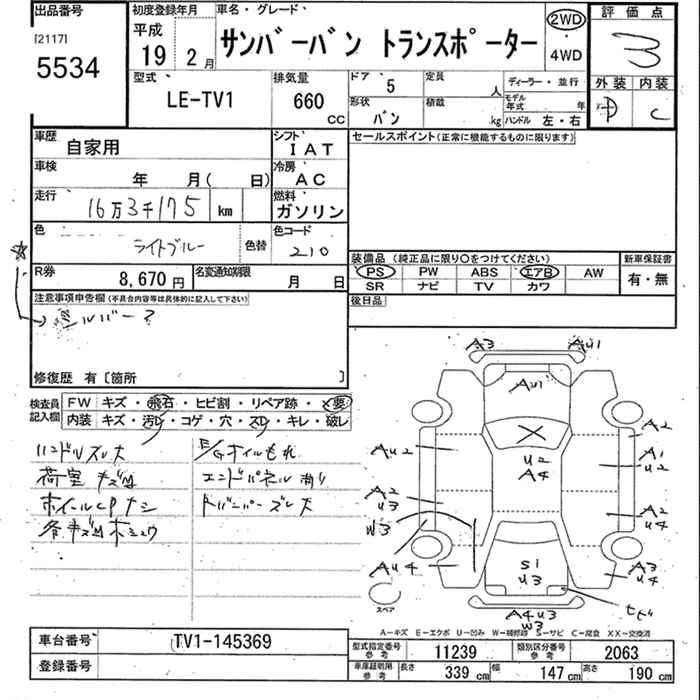 出品番号
[2117]
5534
初度登録年月
平成
19 2月
車名・グレード
サンバーバン トランスポーター
2WD
・
4WD
評価点
3
外装 内装
D C
型式
LE-TV1
排気量
660
CC
ドア
5
定員
人
形状
バン
積載
kg
ディーラー・並行
モデル年式 年
ハンドル 左・右
車歴
自家用
シフト
IAT
車検
年 月( 日)
冷房
AC
走行
16万3千175 km
燃料
ガソリン
色
ライトブルー
色替
色コード
210
R券
8,670円
名変通知期限
月 日
セールスポイント(正常に機能するものに限ります)
装備品 (純正品に限り○をつけてください)
PS PW ABS エアB AW
SR ナビ TV カワ
新車保証書
有・無
後日品
注意事項申告欄(不具合内容等は具体的に記入して下さい)
シルバー?
修復歴 有〔箇所 〕
検査員記入欄
FW キズ・飛石・ヒビ割・リペア跡・×要
内装 キズ・汚レ・コゲ・穴・スレ・キレ・破レ
ハンドルスレ大
荷室キズ凹
ホイールCPナシ
各キズ凹
E/Gオイルもれ
エンドパネル
バンパーズレ大
A3 AU1
AU1
A2
A1
U2
AU2
U2
A4
A2
U3
W3
A2
U4
AU4
S1
U3
A3
U4
A4U3
W3
スペア
A-キズ E-エクボ U-凹み W-補修跡 S-サビ C-腐食 XX-交換済
車台番号
TV1-145369
登録番号
型式指定番号
参考
11239
類別区分番号
参考
2063
車庫証明用
参考
長さ 339 cm 幅 147 cm 高さ 190 cm